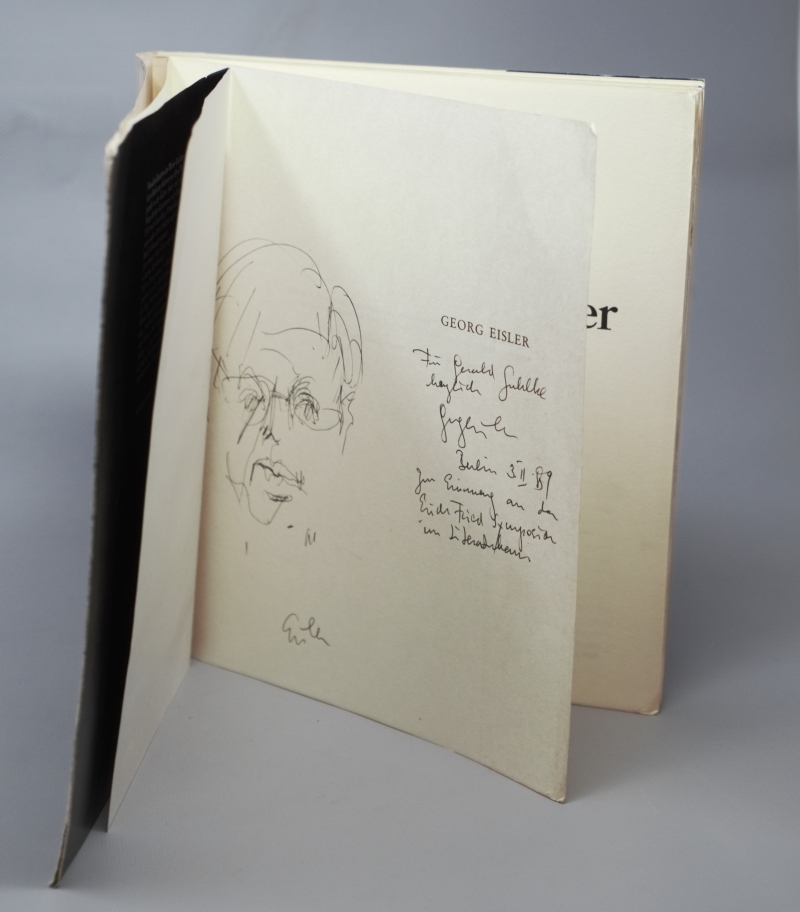 GEORG EISLER
Für Gerald
herzlich
Berlin 3 II 89
Zur Erinnerung an das
Erich Fried Symposion
im Literaturhaus
Eisler
er